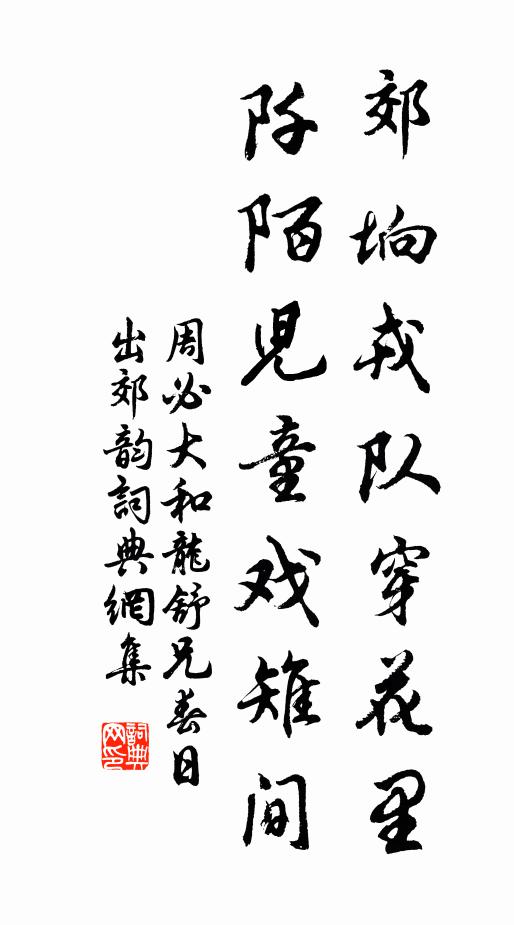 郊坰戎队穿花里
阡陌児童戏雉间
周必大和龍舒兄春日
出郊韵詞典網集
詞典網印